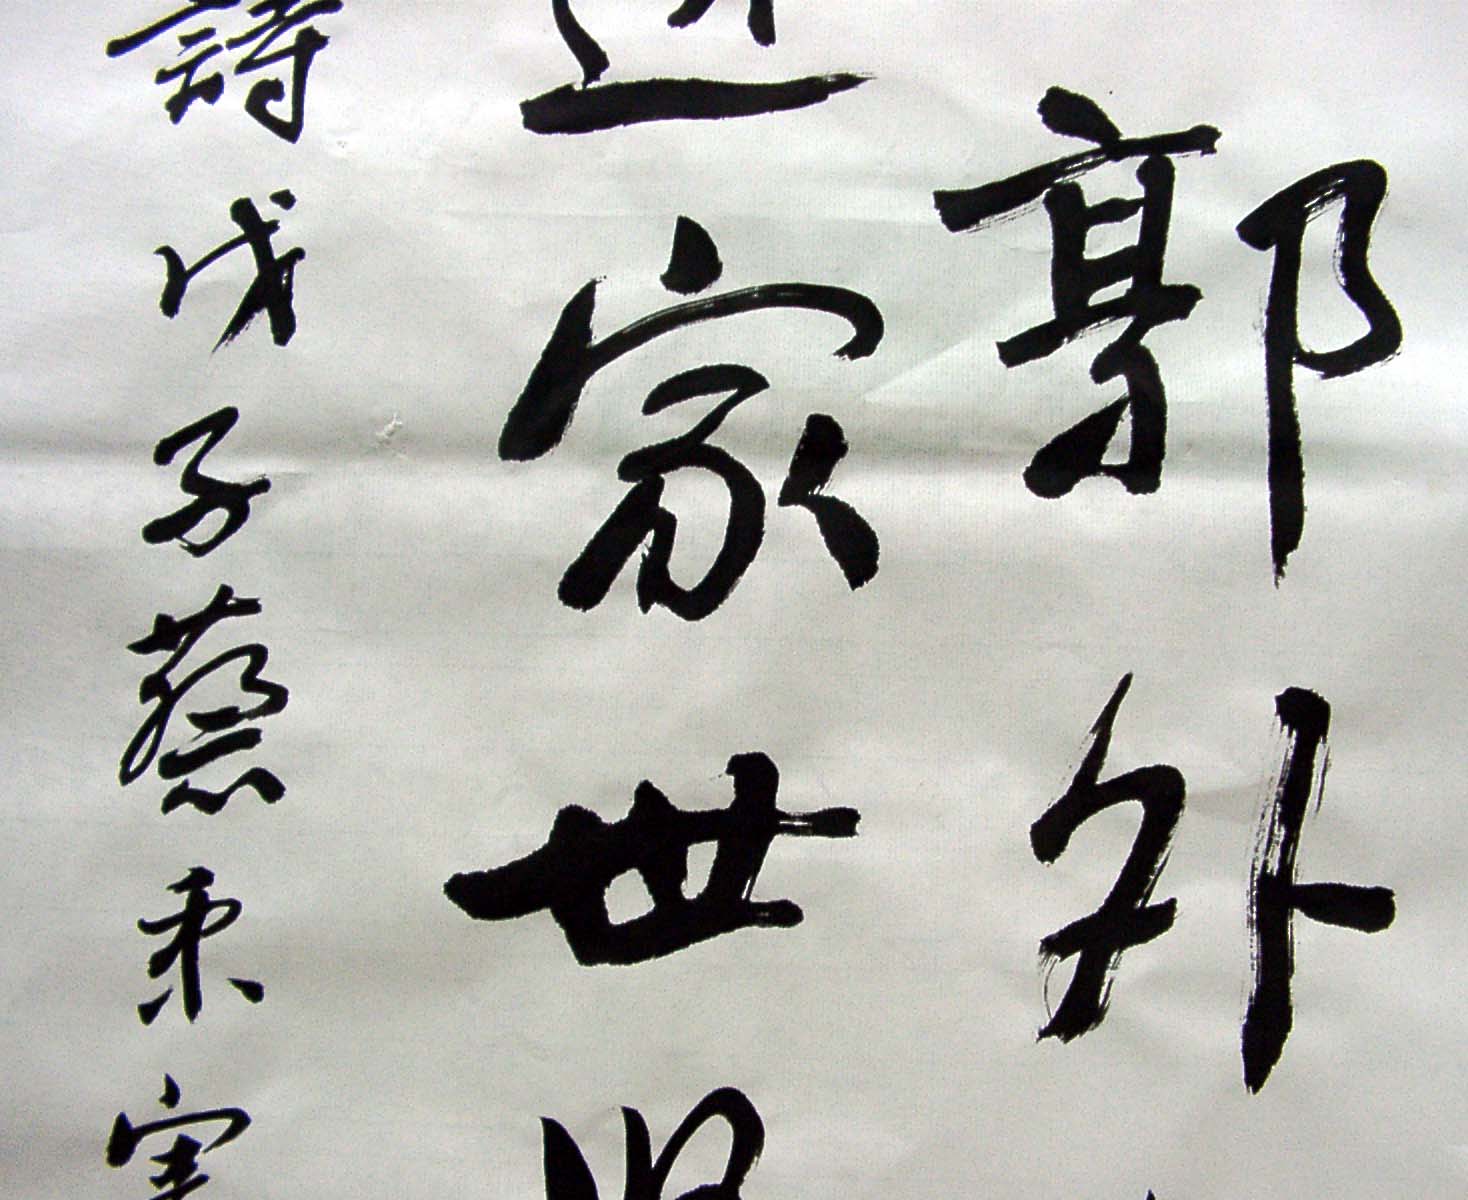 郭外
家世
詩戊子蔡秉